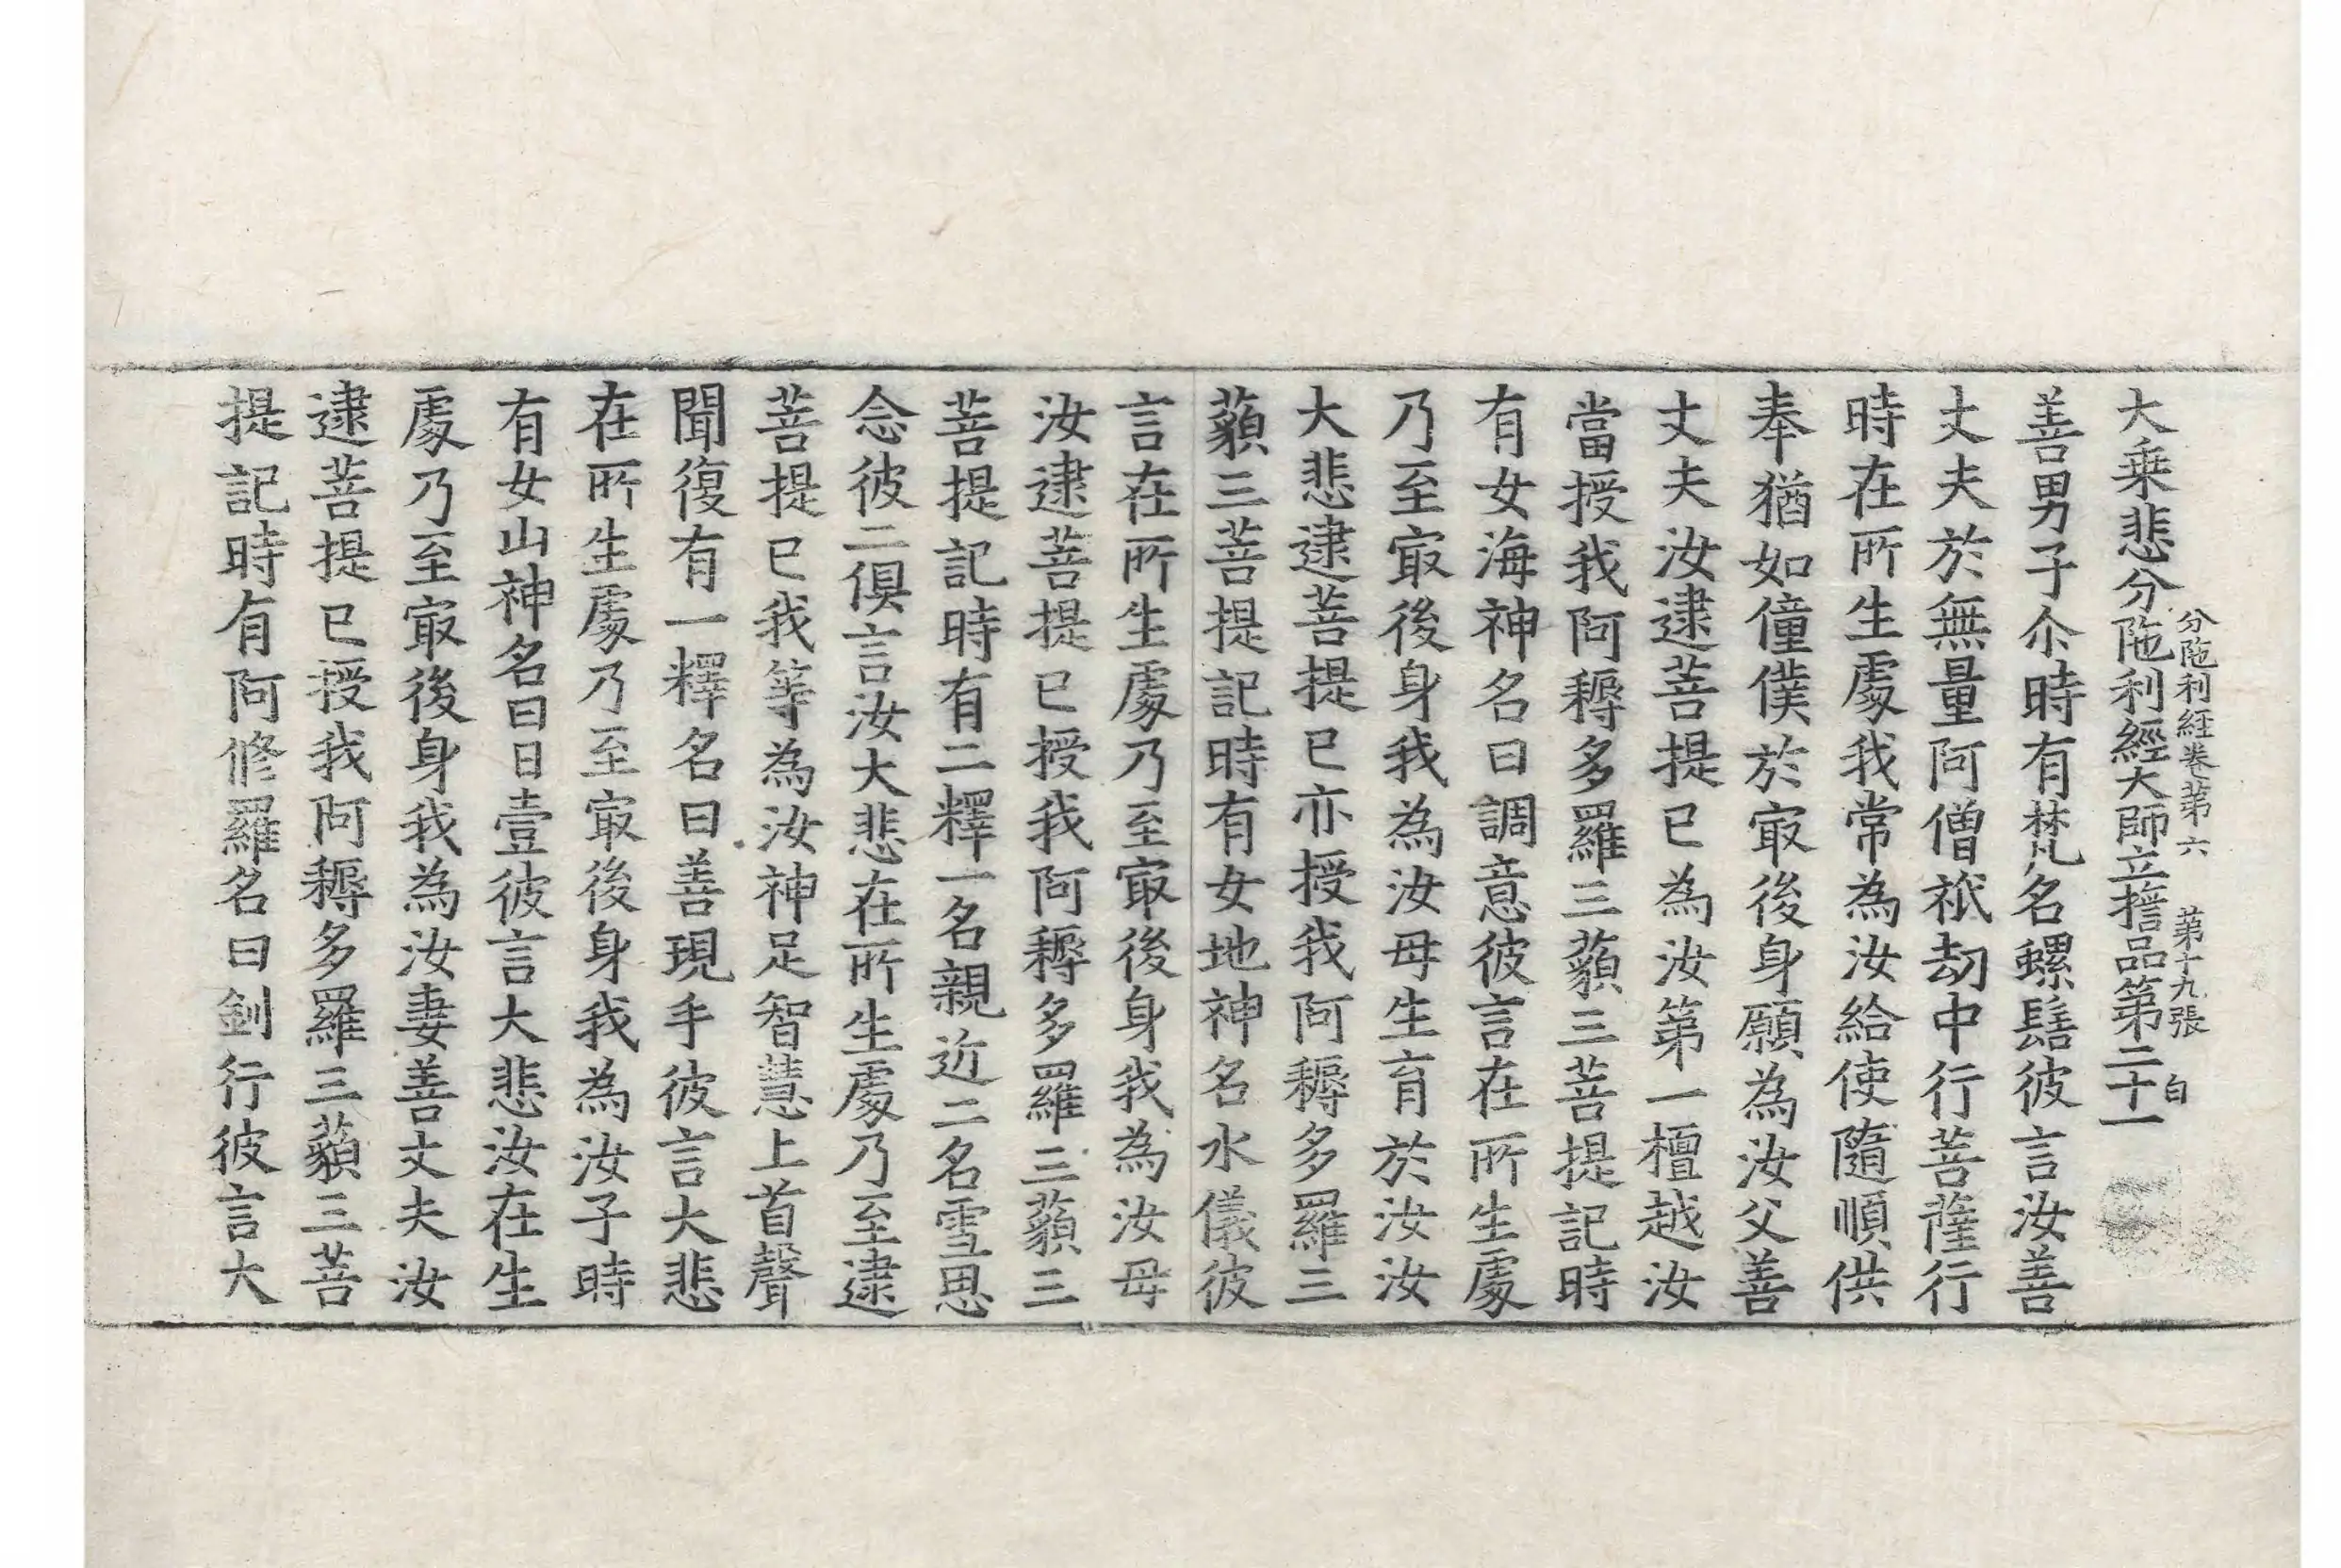 分陁利經卷第六　第十九張　白
大乗悲分陁利經大師立擔品第二十一
善男子尒時有梵名螺髻彼言汝善
丈夫於無量阿僧祇劫中行菩薩行
時在所生處我常為汝給使隨順供
奉猶如僮僕於㝡後身願為汝父善
丈夫汝逮菩提已為汝第一檀越汝
當授我阿耨多羅三藐三菩提記時
有女海神名曰調意彼言在所生處
乃至㝡後身我為汝母生育於汝汝
大悲逮菩提已亦授我阿耨多羅三
藐三菩提記時有女地神名水儀彼
言在所生處乃至㝡後身我為汝母
汝逮菩提已授我阿耨多羅三藐三
菩提記時有二釋一名親近二名雪思
念彼二俱言汝大悲在所生處乃至逮
菩提已我等為汝神足智慧上首聲
聞復有一釋名曰善現手彼言大悲
在所生處乃至㝡後身我為汝子時
有女山神名曰日壹彼言大悲汝在生
處乃至㝡後身我為汝妻善丈夫汝
逮菩提已授我阿耨多羅三藐三菩
提記時有阿修羅名曰釗行彼言大